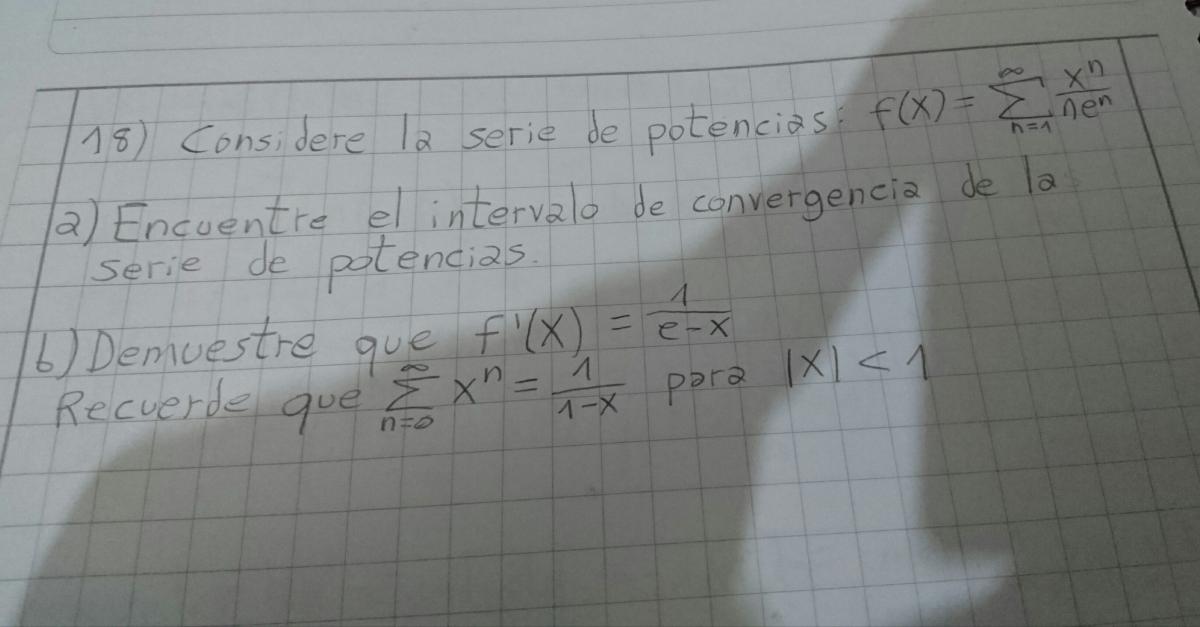 18) Considere la serie de potencias: f(x) = \sum_{n=1}^{\infty} \frac{x^n}{ne^n}
a) Encuentre el intervalo de convergencia de la
serie de potencias.
b) Demuestre que f'(x) = \frac{1}{e-x}
Recuerde que \sum_{n=0}^{\infty} x^n = \frac{1}{1-x} para |x| < 1